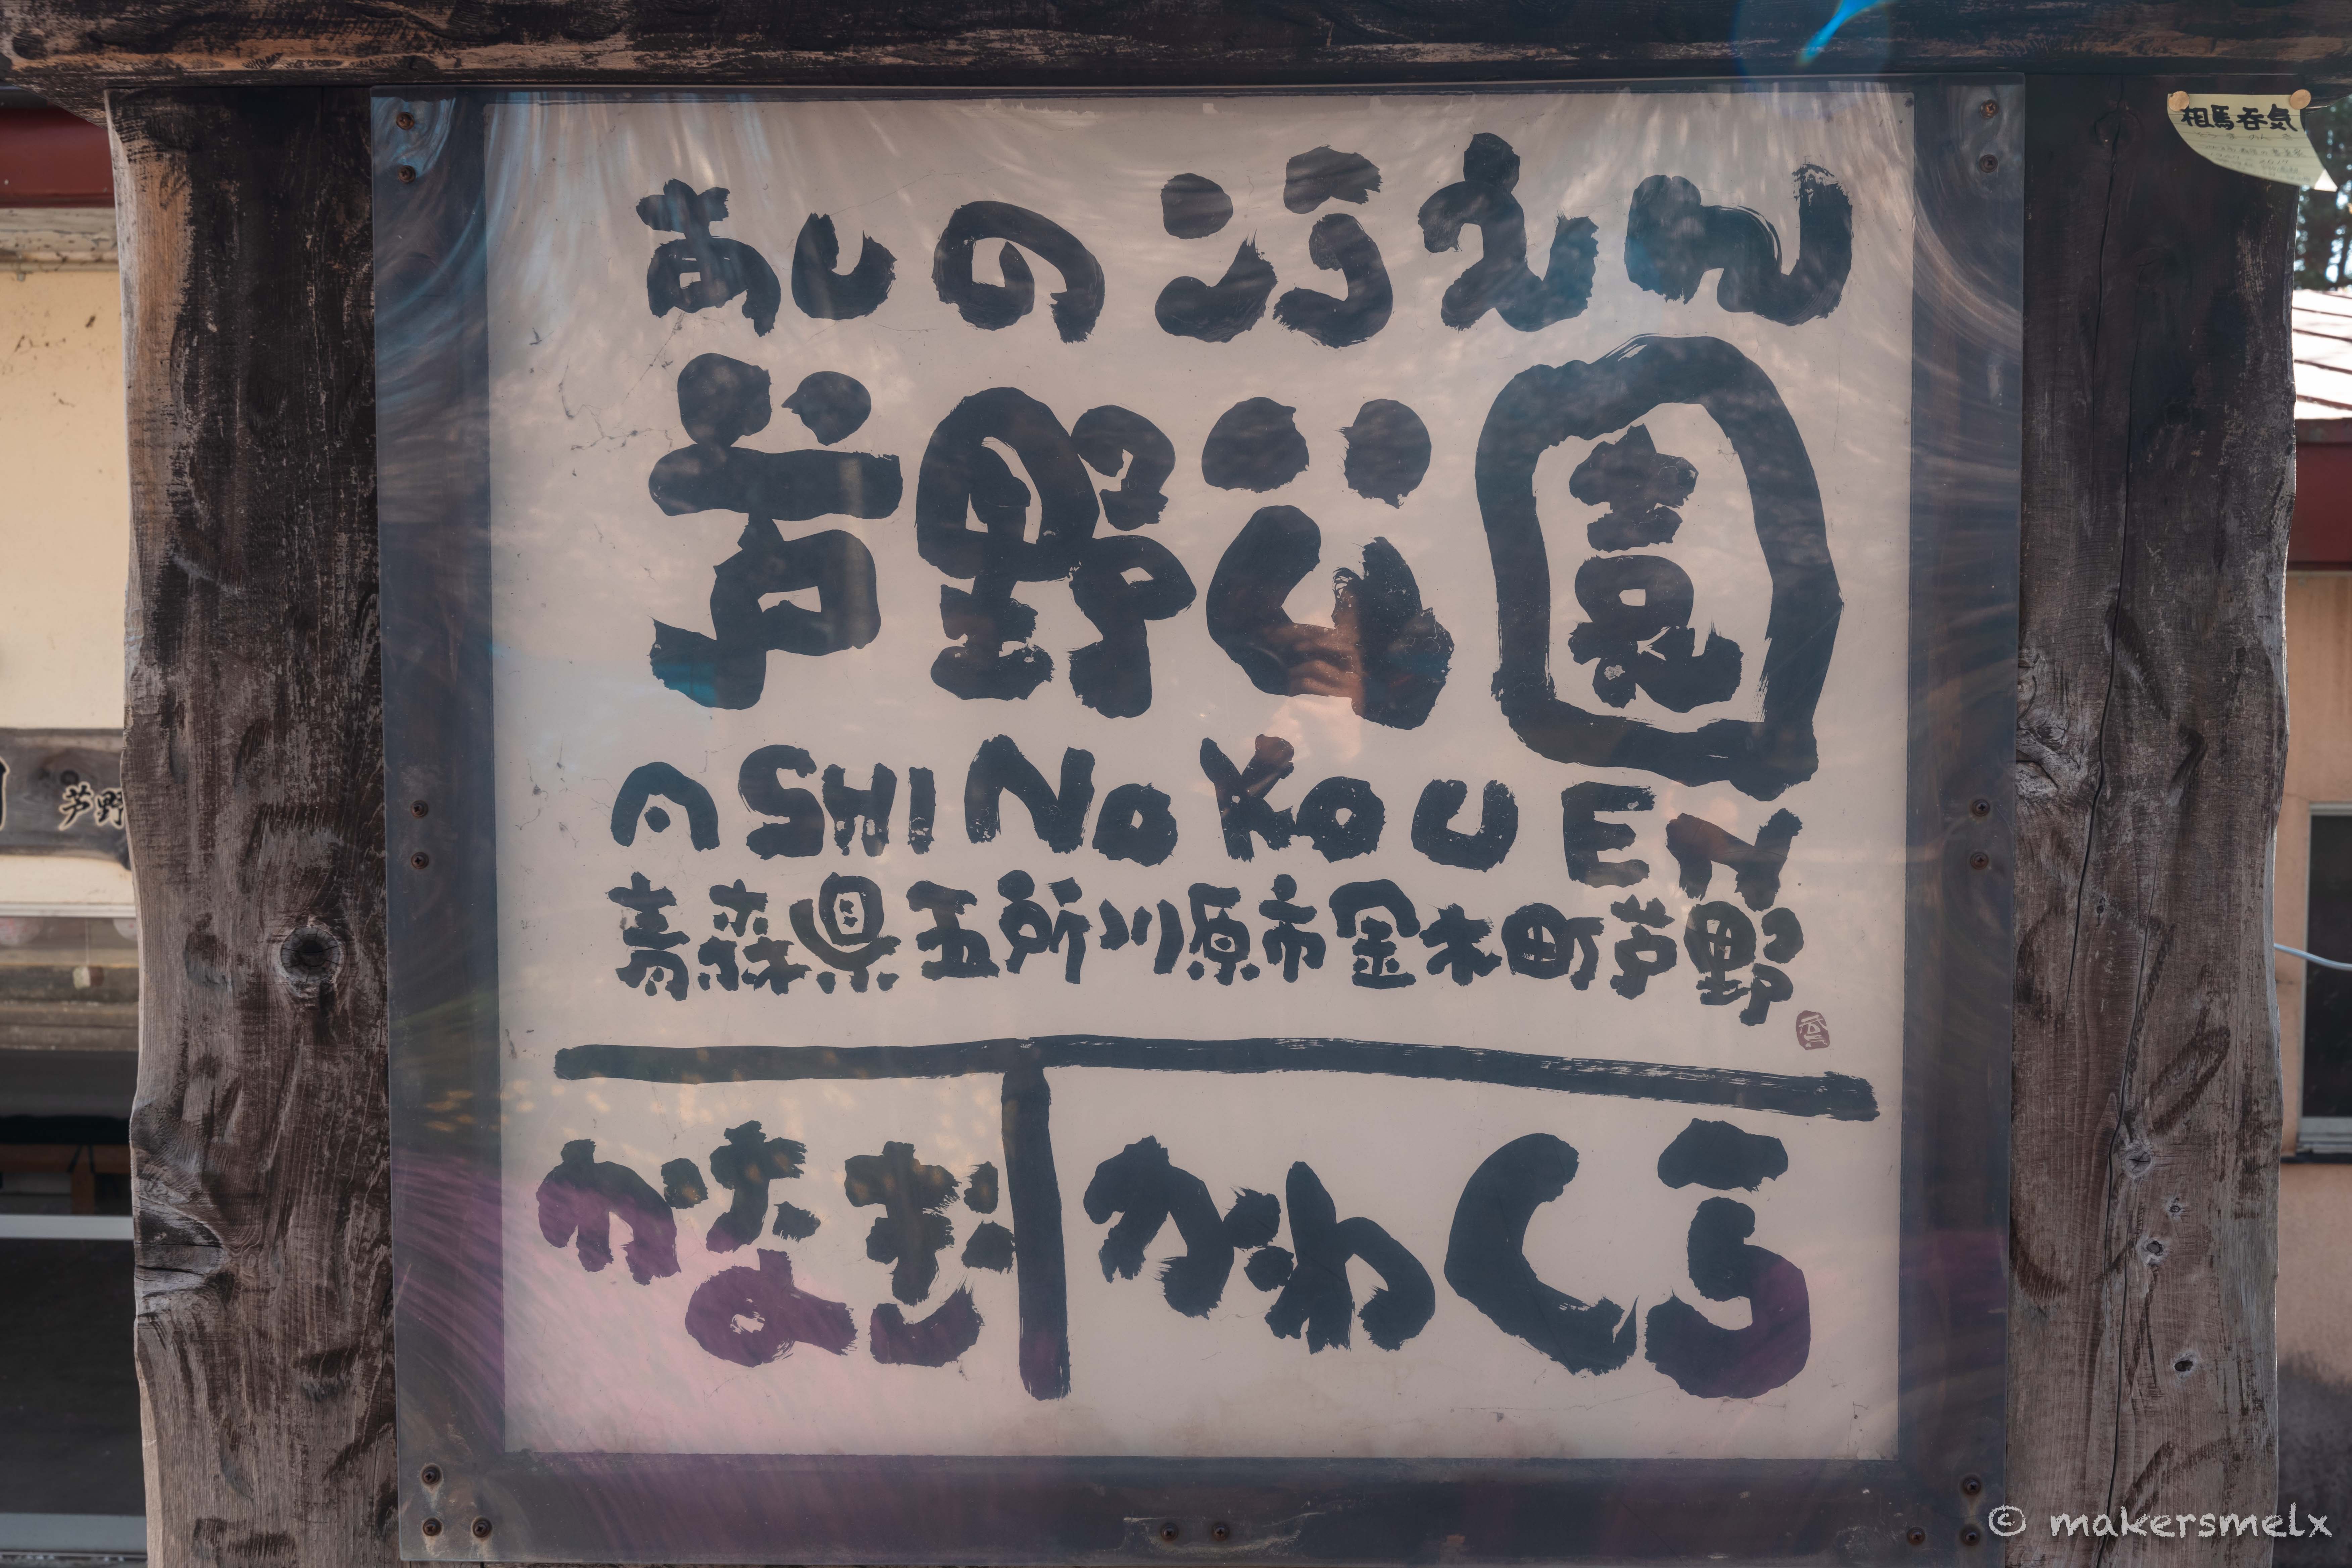 あしのこうえん
芦野公園
ASHINOKOUEN
青森県五所川原市金木町芦野
かなぎ
かわくら
相馬呑気
芦野
© makersmelx